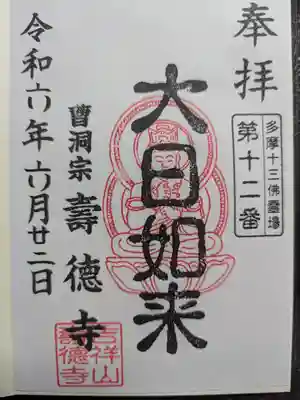 奉拝
多摩十三佛霊場
第十二番
大日如来
曹洞宗 壽徳寺
令和六年六月廿二日
吉祥山
壽德寺